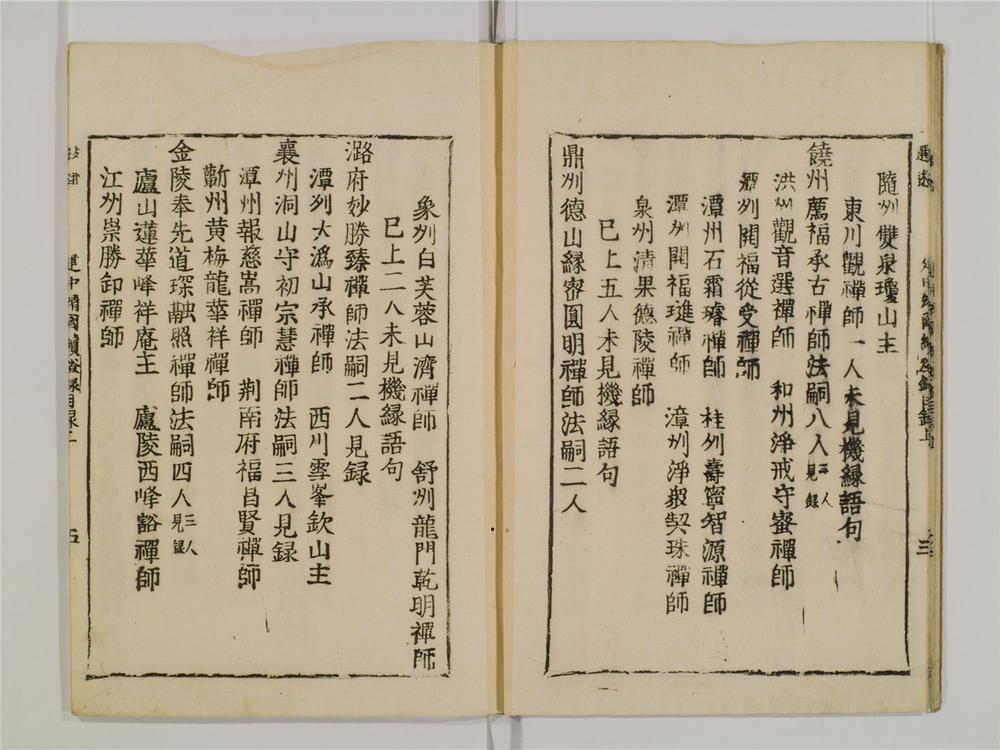 隨州雙泉瓊山主
東川觀禪師一人未見機緣語句
饒州薦福承古禪師法嗣八人三人見錄
洪州觀音選禪師 和州淨戒守蜜禪師
州開福從受禪師
潭州石霜璿禪師 桂州壽寧智源禪師
潭州開福璡禪師 漳州淨契珠禪師
泉州清果德陵禪師
已上五人未見機緣語句
鼎州德山緣密圓明禪師法嗣二人
象州白芙蓉山濟禪師 舒州龍門乾明禪師
已上二人未見機緣語句
潞府妙勝臻禪師法嗣二人見録
潭州大溈山承禪師 西川雪峯欽山主
襄州洞山守初宗慧禪師法嗣三人見録
潭州報慈嵩禪師 荆南府福昌賢禪師
蘄州黃梅龍華祥禪師
金陵奉先道琛融照禪師法嗣四人三人見録
廬山蓮華峰祥庵主 廬陵西峰豁禪師
江州崇勝御禪師
建中靖國續燈録目录上